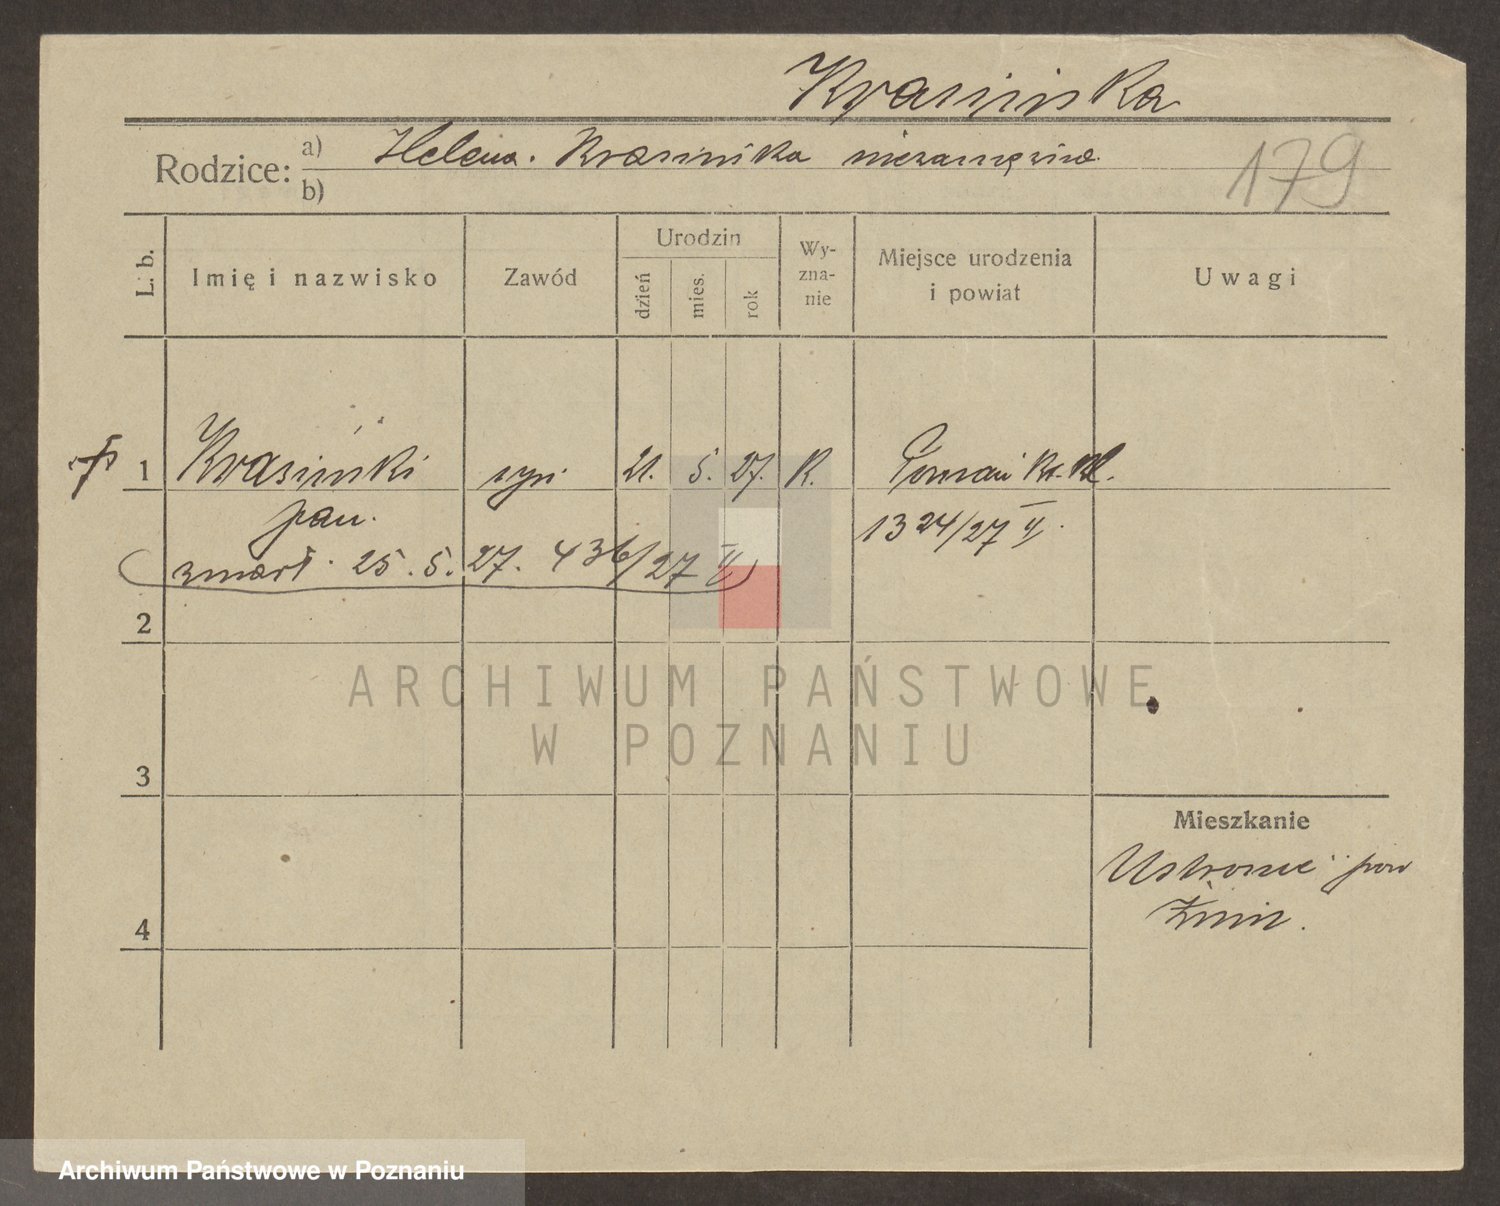 Krasińska
Rodzice: a) Helena Krasińska niezamężna.
b)
179
L. b.
Imię i nazwisko
Zawód
Urodzin
dzień
mies.
rok
Wy-
zna-
nie
Miejsce urodzenia
i powiat
Uwagi
† 1 Krasiński syn 21. 5. 27. K. Poznań
pan. 1324/27 II.
zmarł 25. 5. 27. 436/27 II
2
3
4
Mieszkanie
Ustronie pow
Żnin.
ARCHIWUM PAŃSTWOWE
W POZNANIU
Archiwum Państwowe w Poznaniu